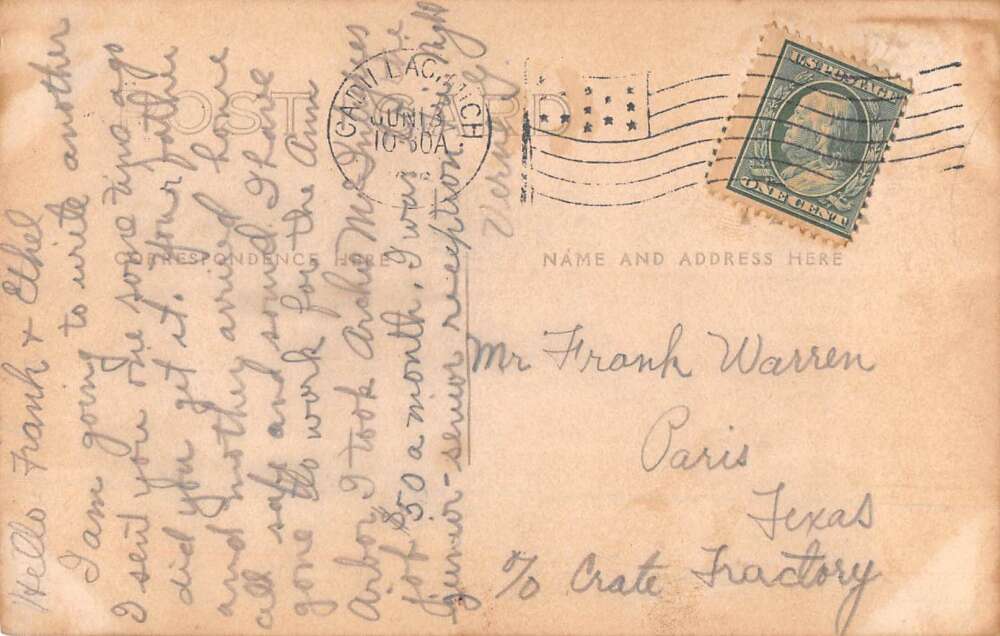 POST CARD
CORRESPONDENCE HERE
NAME AND ADDRESS HERE
CADILLAC, MICH
JUN 13
10-30A
U.S. POSTAGE
ONE CENT
Hello Frank & Ethel
I am going to write another
I sent you one some time ago
did you get it. Your father
and mother arrived home
all safe and sound I have
gone to work for the Ann
Arbor I took Archie
job $50 a month, I was
junior-senior reception
night
Mr Frank Warren
Paris
Texas
c/o Crate Fractory